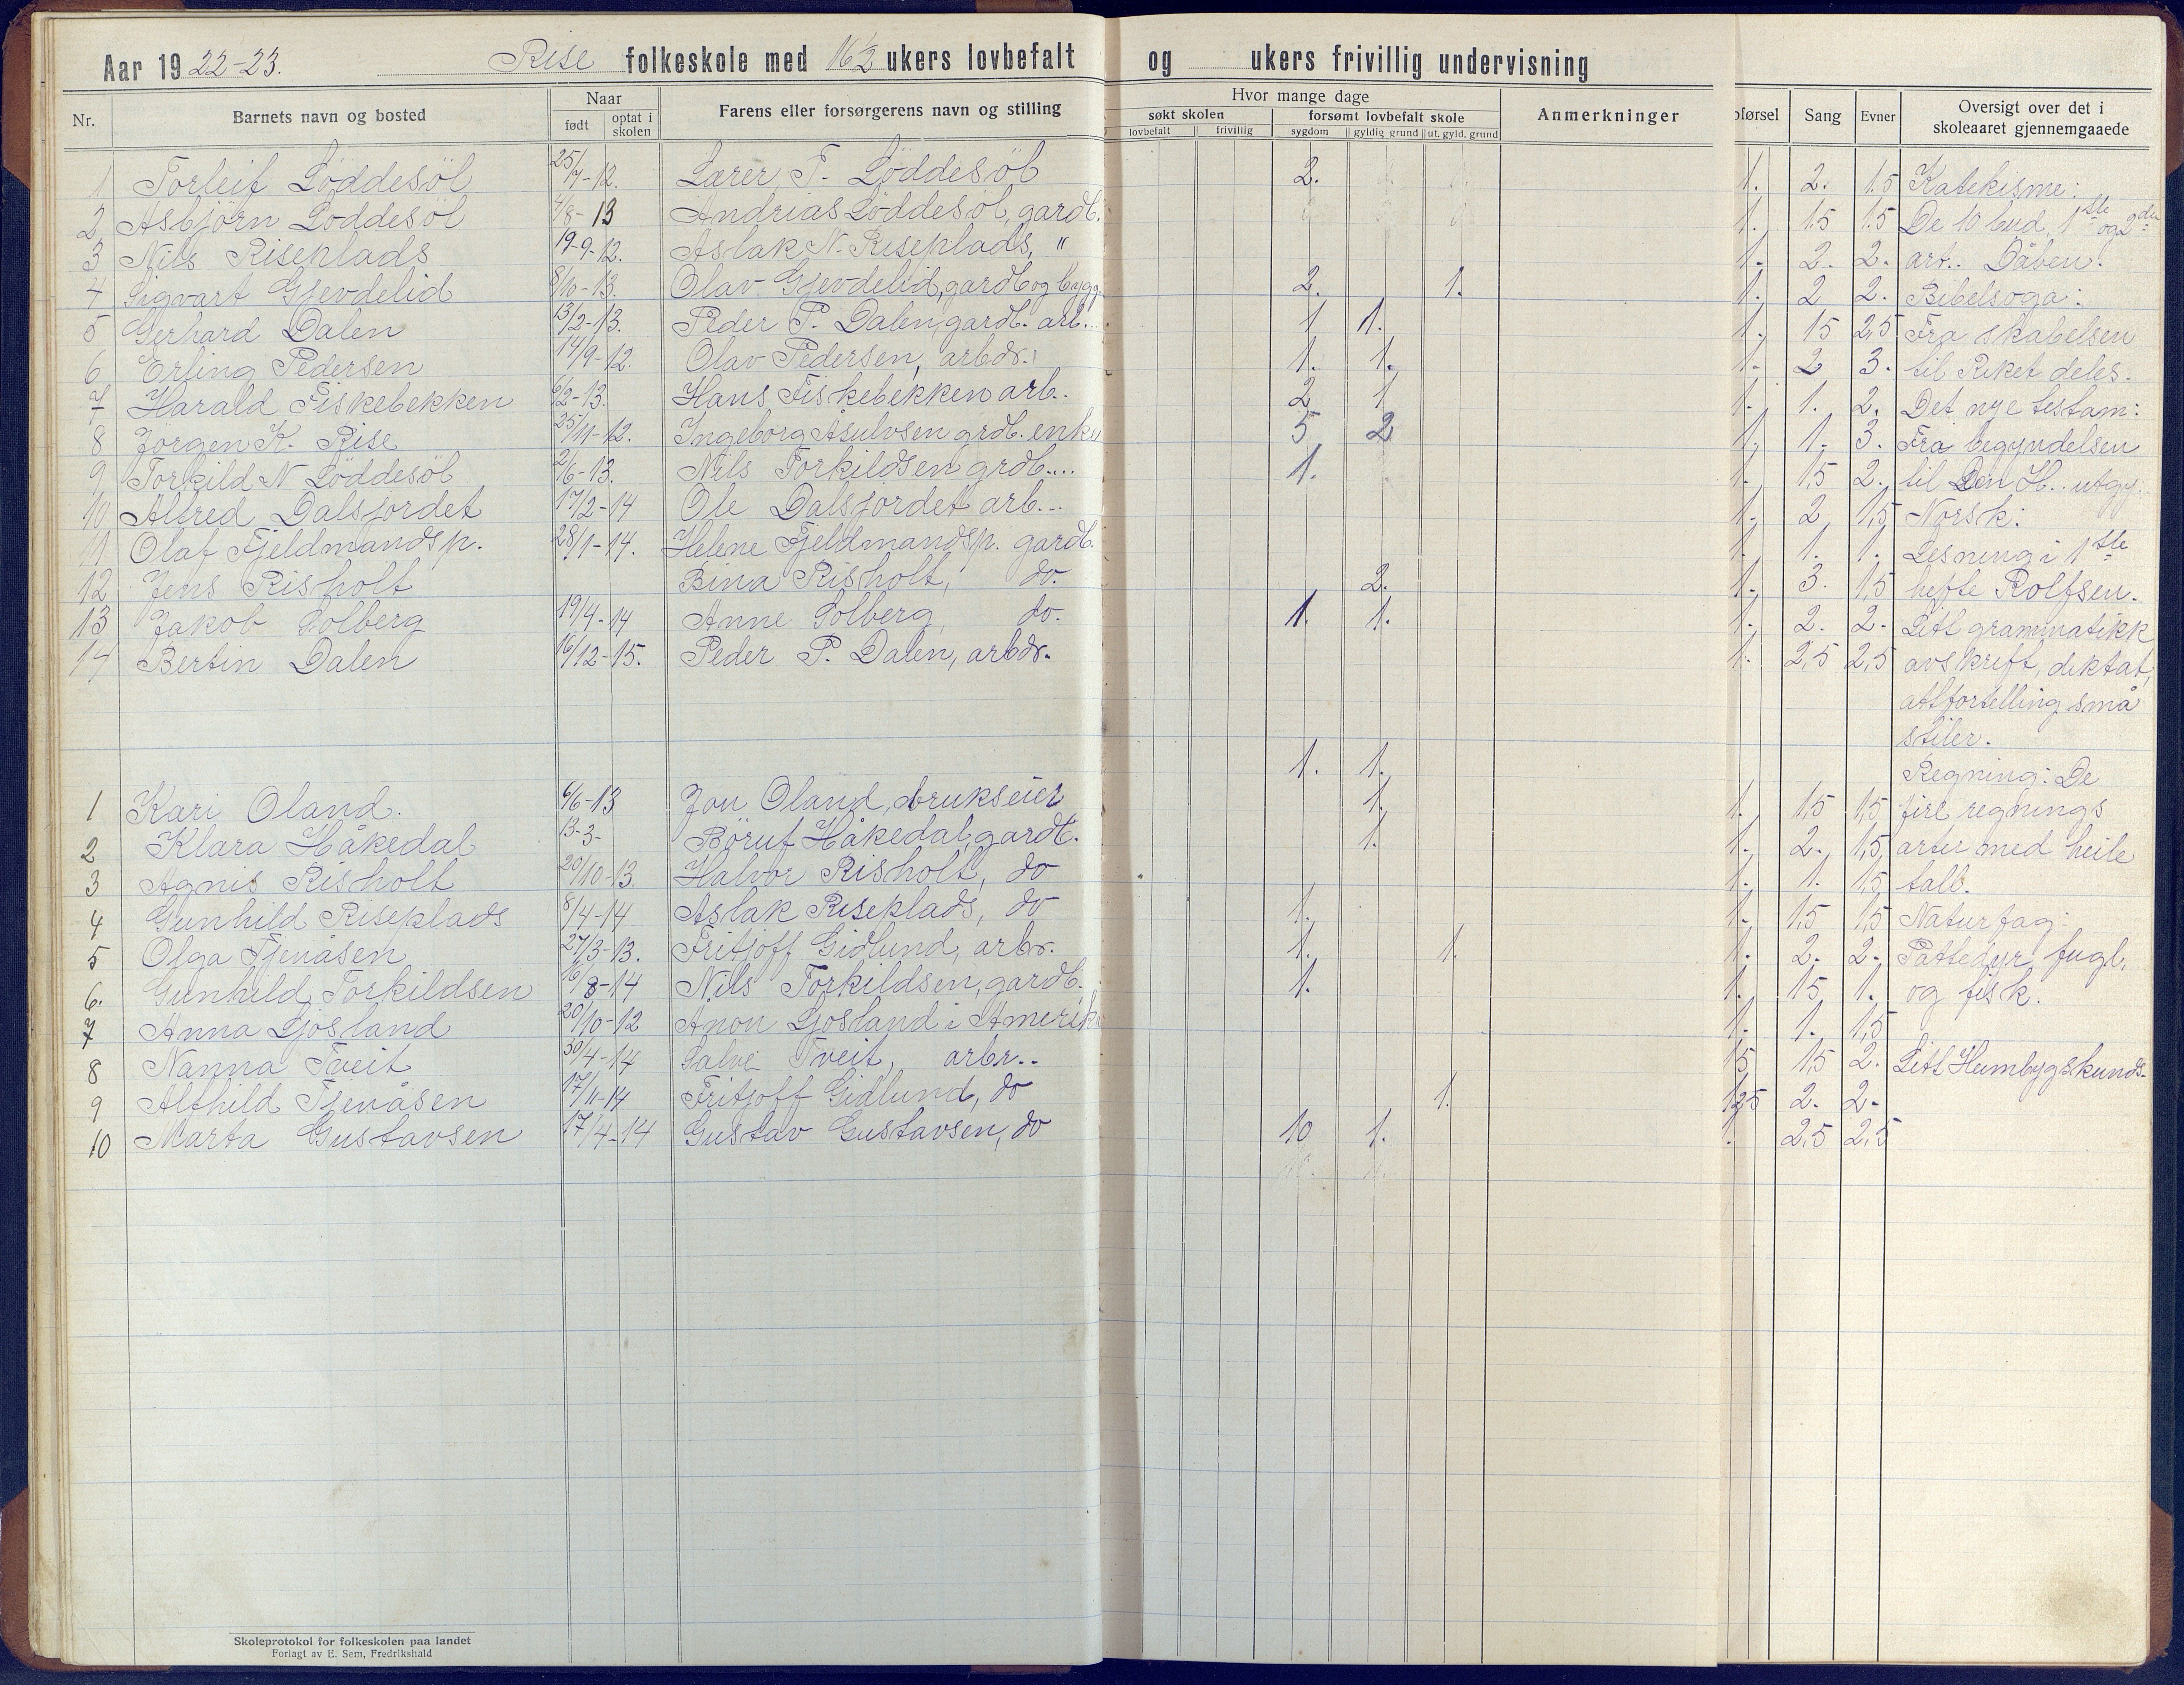 Aar 1922-23. Rise folkeskole med 16 1/2 ukers lovbefalt og ukers frivillig undervisning
Nr. Barnets navn og bosted Naar født optat i skolen Farens eller forsørgerens navn og stilling Hvor mange dage søkt skolen lovbefalt frivillig forsømt lovbefalt skole sygdom gyldig grund ut. gyld. grund Anmerkninger oførsel Sang Evner Oversigt over det i skoleaaret gjennemgaaede
1 Torleif Löddesöl 25/7-12. Lærer T. Löddesöl 2. 1. 2. 1.5 Katekisme:
2 Asbjörn Löddesöl 4/8-13 Andrias Löddesöl, gardb. 1. 1.5 1.5 De 10 bud, 1ste og 2den
3 Nils Riseplads 19-9-12. Aslak N. Riseplads, " 1. 2. 2. art.. Dåben.
4 Sigvart Gjevdelid 8/10-13. Olav Gjevdelid, gardb og bygg. 2. 1. 1. 2 2. Bibelsoga:
5 Gerhard Dalen 13/2-13. Peder P. Dalen, gardb. arb... 1 1. 1. 15 2,5 Fra skabelsen
6 Erling Pedersen 14/9-12. Olav Pedersen, arbdr. 1. 1. 1. 2 3. til Riket deles.
7 Harald Fiskebekken 6/2-13. Hans Fiskebekken arb.. 2 1 1. 1. 2. Det nye testam:
8 Jörgen K. Rise 25/11-12. Ingeborg Åsulvsen grdb. enke 5 2 1. 1. 3. Fra begyndelsen
9 Torkild N Löddesöl 2/6-13. Nils Torkildsen grdb.... 1. 1. 1,5 2. til Den H.. utgy:
10 Alfred Dalsjordet 17/2-14 Ole Dalsjordet arb... 1. 2 1,5 Norsk:
11 Olaf Fjeldmandsp. 28/1-14. Helene Fjeldmandsp. gardb. 1. 1. 1. Lesning i 1ste
12 Jens Risholt Bina Risholt, do. 2. 1. 3. 1,5 hefte Rolfsen.
13 Jakob Solberg 19/4-14 Anne Solberg, do. 1. 1. 1. 2. 2. Litt grammatikk
14 Bertin Dalen 16/12-15. Peder P. Dalen, arbdr. 1. 2,5 2,5 avskrift, diktat,
attfortelling små
stiler.
1. 1. Regning: De
1 Kari Oland. 6/6-13 Jon Oland, brukseier 1. 1. 1,5 1,5 fire regnings
2 Klara Håkedal 13-3- Böruf Håkedal, gardb. 1. 1. 2. 1,5 arter med heile
3 Agnis Risholt 20/10-13. Halvor Risholt, do 1. 1. 1,5 tall.
4 Gunhild Riseplads 8/4-14 Aslak Riseplads, do 1. 1. 1,5 1,5 Naturfag:
5 Olga Tjenåsen 27/3-13. Fritjoff Gidlund, arbr. 1. 1. 1. 2. 2. Pattedyr, fugl,
6. Gunhild Torkildsen 16/8-14 Nils Torkildsen, gardb. 1. 1. 15 1. og fisk.
7 Anna Ljösland 20/10-12 Anon Ljosland i Amerika 1. 1. 1,5
8 Nanna Tveit 30/4-14 Salve Tveit, arbr.. 15 1,5 2. Litt Heimbygdskunds-
9 Alfhild Tjenåsen 17/11-14 Fritjoff Gidlund, do 1. 1,25 2. 2.
10 Marta Gustavsen 17/4-14 Gustav Gustavsen, do 10 1. 1. 2,5 2,5
Skoleprotokol for folkeskolen paa landet
Forlagt av E. Sem, Fredrikshald